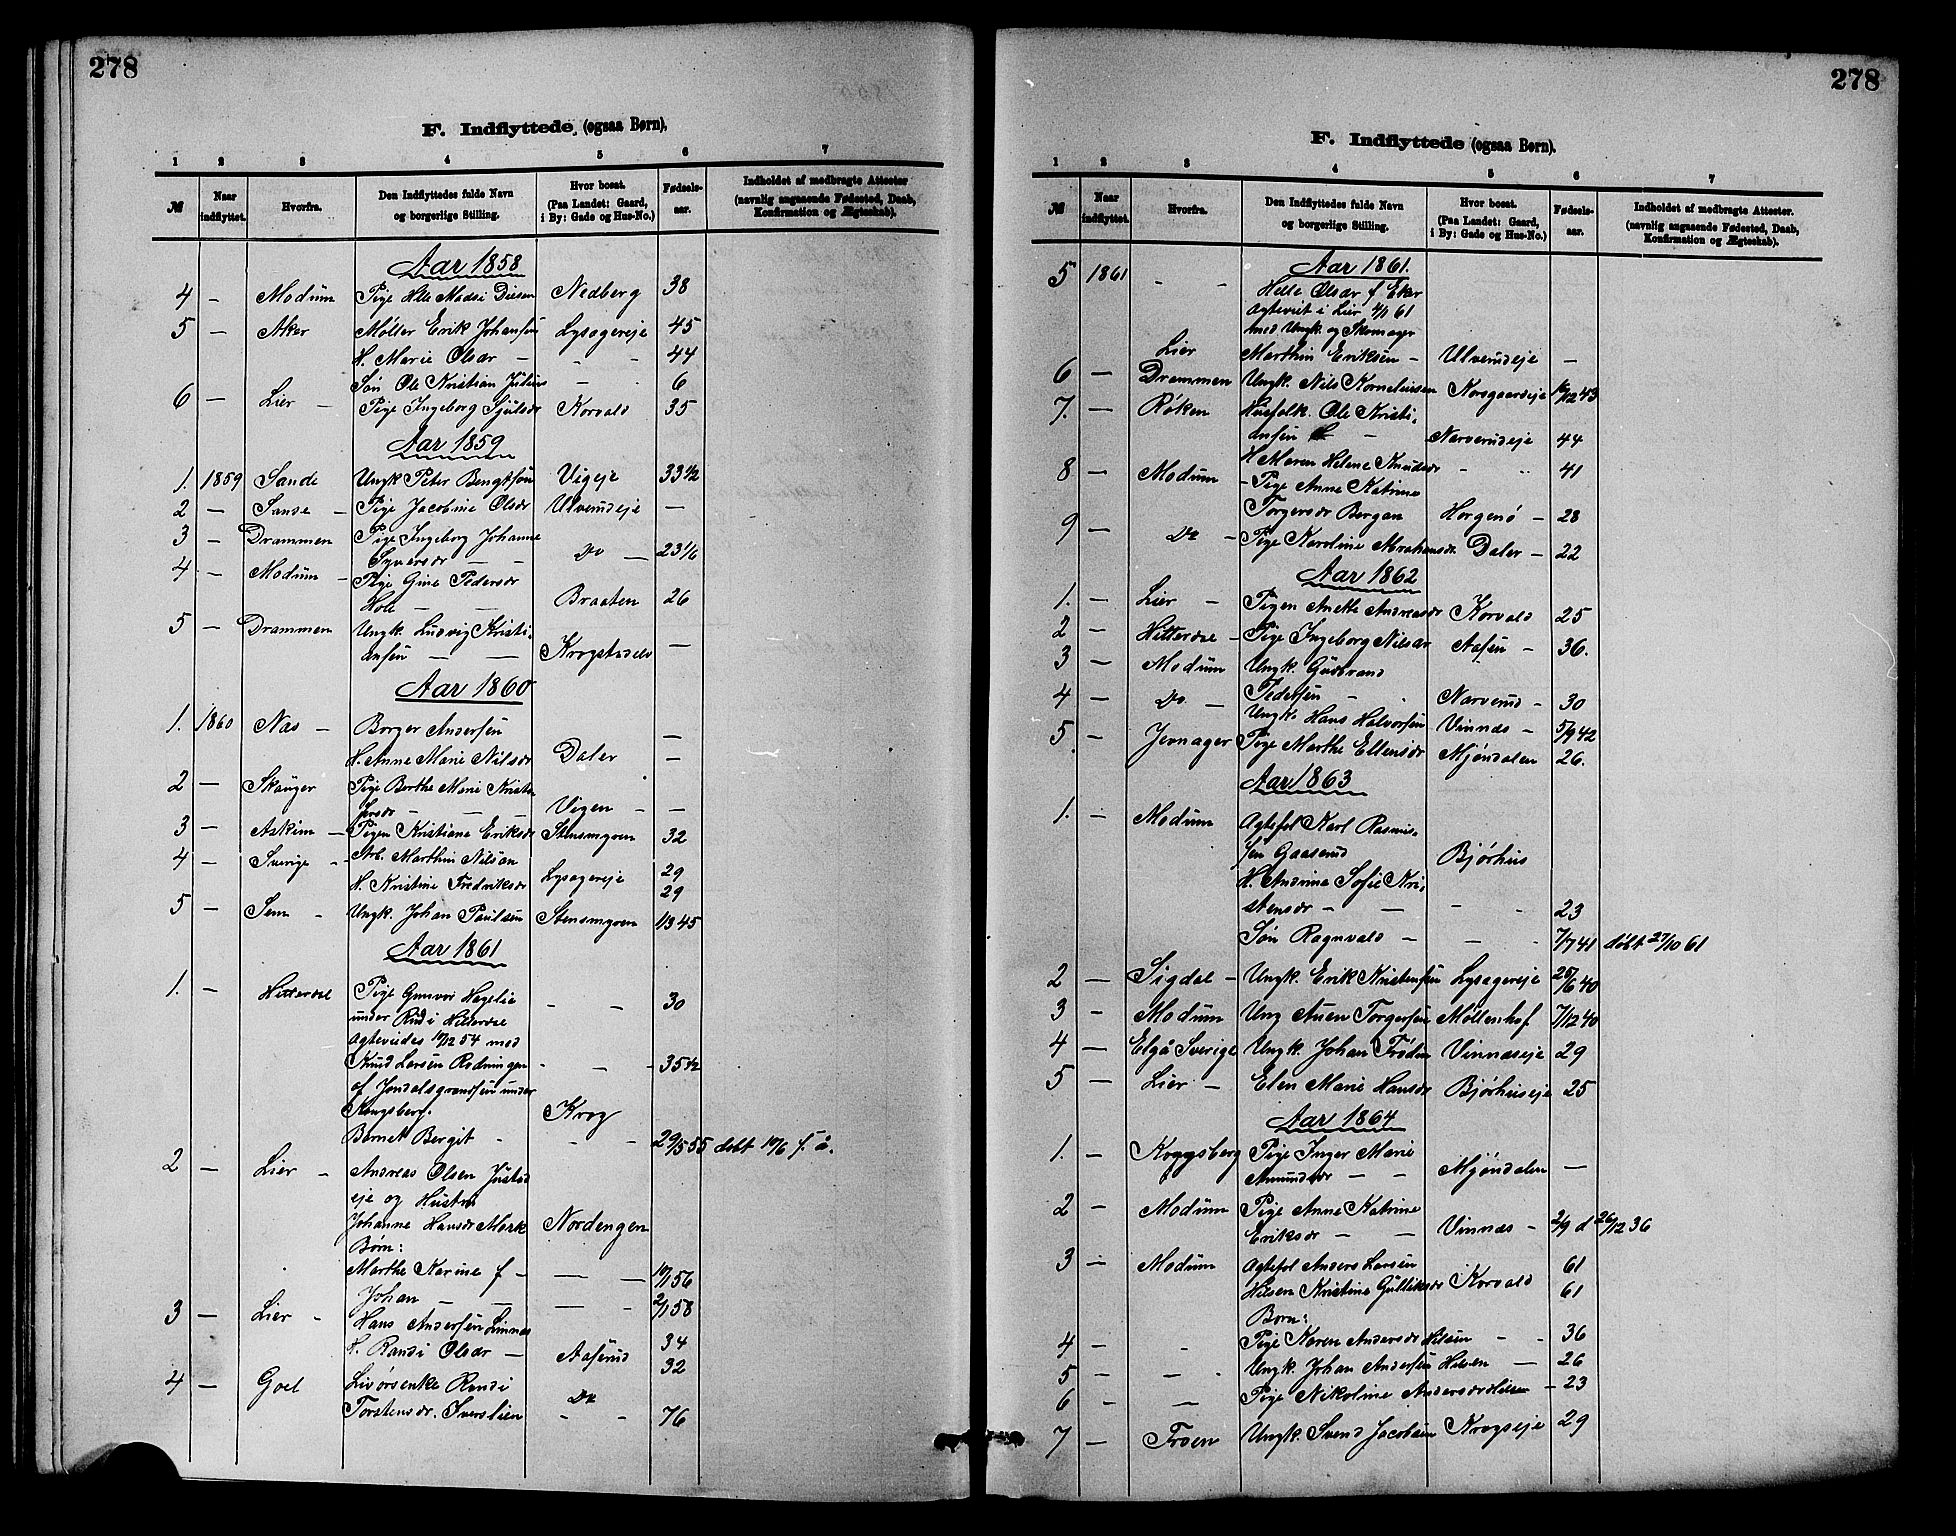 278
F. Indflyttede, (ogsaa Børn),
1 2 3 4 5 6 7
№ Naar indflyttet. Hvorfra. Den Indflyttedes fulde Navn og borgerlige Stilling. Hvor bosat. (Paa Landet: Gaard, i By: Gade og Hus-No.) Fødsels-aar. Indholdet af medbragte Attester (navnlig angaaende Fødested, Daab, Konfirmation og Ægteskab).
Aar 1858
4 — Modum Pige Helle Madsdr Diesen Nedberg 38
5 — Aker Møller Erik Johansen Lysagereje 45
H. Marie Olsdr — — - 44
Søn Ole Kristian Julius — - 6
6 — Lier — Pige Ingeborg Sjulsdr Korvald 35
Aar 1859
1. 1859 Sande Ungk Peter Bengtsøn Vigeje 33 1/2
2 — Sande — Pige Jacobine Olsdr Ulverudeje —
3 — Drammen Pige Ingeborg Johanne
Syversdr — — Do — 23 1/6
4 — Modum — Pige Gine Pedersdr
Hole — — Braaten 26
5 — Drammen Ungk. Ludvig Kristi-
ansen — — Krogstadelv —
Aar 1860
1. 1860 Nas — Borger Andersen —
H. Anne Marie Nilsdr Daler —
2 — Skauger Pige Berthe Marie Kristo
fersdr — — — Vigen — —
3 — Askim — Pigen Kristiane Eriksdr Stensmyren 32
4 — Sverige — Arb. Marthin Nilsøn 29
H. Kristine Fredriksdr Lysagereje 29
5 — Sem - Ungk. Johan Paulsen Stensmyren 1/3 45
Aar 1861
1. — Hitterdal Pige Gunvor Hegelie — — 30
under Rudi Hitterdal
Agteviedes 19/12 54 med
Knud Larsen Rodningen - — - 35 1/2
af Jondalsgrændsen under
Kongsberg. Krog
Barnet Bergit - — - 29/5 55 døbt 17/6 s. å.
2 — Lier — Andreas Olsen Justad
eje og Hustru
Johanne Hansdr Mork Nordengen
Børn:
Marthe Karine f — — — 19/1 56
Johan — — — - 2/1 58
3 — Lier - Hans Andersen Linnes 34
H. Randi Olsdr — Aaserud 32
4 — Goel Livørsenke Randi Do
Torstensdr. Iverslien - - 76
278
F. Indflyttede (ogsaa Børn).
1 2 3 4 5 6 7
№ Naar indflyttet. Hvorfra. Den Indflyttedes fulde Navn og borgerlige Stilling. Hvor bosat. (Paa Landet: Gaard, i By: Gade og Hus-No.) Fødsels-aar. Indholdet af medbragte Attester. (navnlig angaaende Fødested, Daab, Konfirmation og Ægteskab).
Aar 1861.
5 1861 - - Helle Olsdr f Eker
Agteviet i Lier 4/1 61
med Ungk. og Skomager
Lier Marthin Eriksen — Ulverudeje —
6 — Drammen Ungk. Nils Korneliussen Norgaardeje 16/12 43
7. — Røken Husfolk. Ole Kristi-
ansen — Narverudeje 44
H Maren Helene Knudsdr - - 41
8 — Modum — Pige Anne Katrine
Torgersdr Bergan Horgenø — 28
9 — Do — Pige Karoline Abrahamsdr Daler — 22
Aar 1862
1. — Lier — Pigen Anette Andreasdr Korvald 25
2 — Hitterdal — Pige Ingeborg Nilsdr Aasen — 36.
3 — Modum Ungk. Gudbrand
Pedersen — - Narverud — 30
4 — Do — Ungk. Hans Halvorsen Vinnæs — 5/9 42
5. — Jevnager Pige Marthe Ellensdr Mjøndalen 26.
Aar 1863
1. — Modum Agtefol Karl Rasmus-
sen Gaaserud Bjørhus
H. Andrine Sofie Kri-
stensdr — — - - 23
Søn Ragnvald — — - 7/7 41 døbt 27/10 61
2 — Sigdal — Ungk. Erik Kristensen Lysagereje 25/6 40
3 — Modum Ung Auen Torgersen Møllenhof 7/12 40
4 — Elgå Sverige Ungk. Johan Frodin Vinnæseje 29
5 — Lier — Elen Marie Hansdr Bjørhuseje 25
Aar 1864
1. — Koggsberg Pige Inger Marie
Amundsdr — — Mjøndalen —
2 — Modum Pige Anne Katrine
Eriksdr — — Vinnæs — 2/9 d 26/12 36
3 — Modum Agtefol Anders Larsen 61
Hilsen Kristine Gulliksdr Korvald 61
Børn:
4 — - Pige Karen Andersdr Hilsen — - 36
5 — — - Ungk. Johan Andersen Hilsen — 26
6 - — Pige Nikoline Andersdr Hilsen — 23
7 — Froen Ungk. Svend Jacobsen Krogseje 29